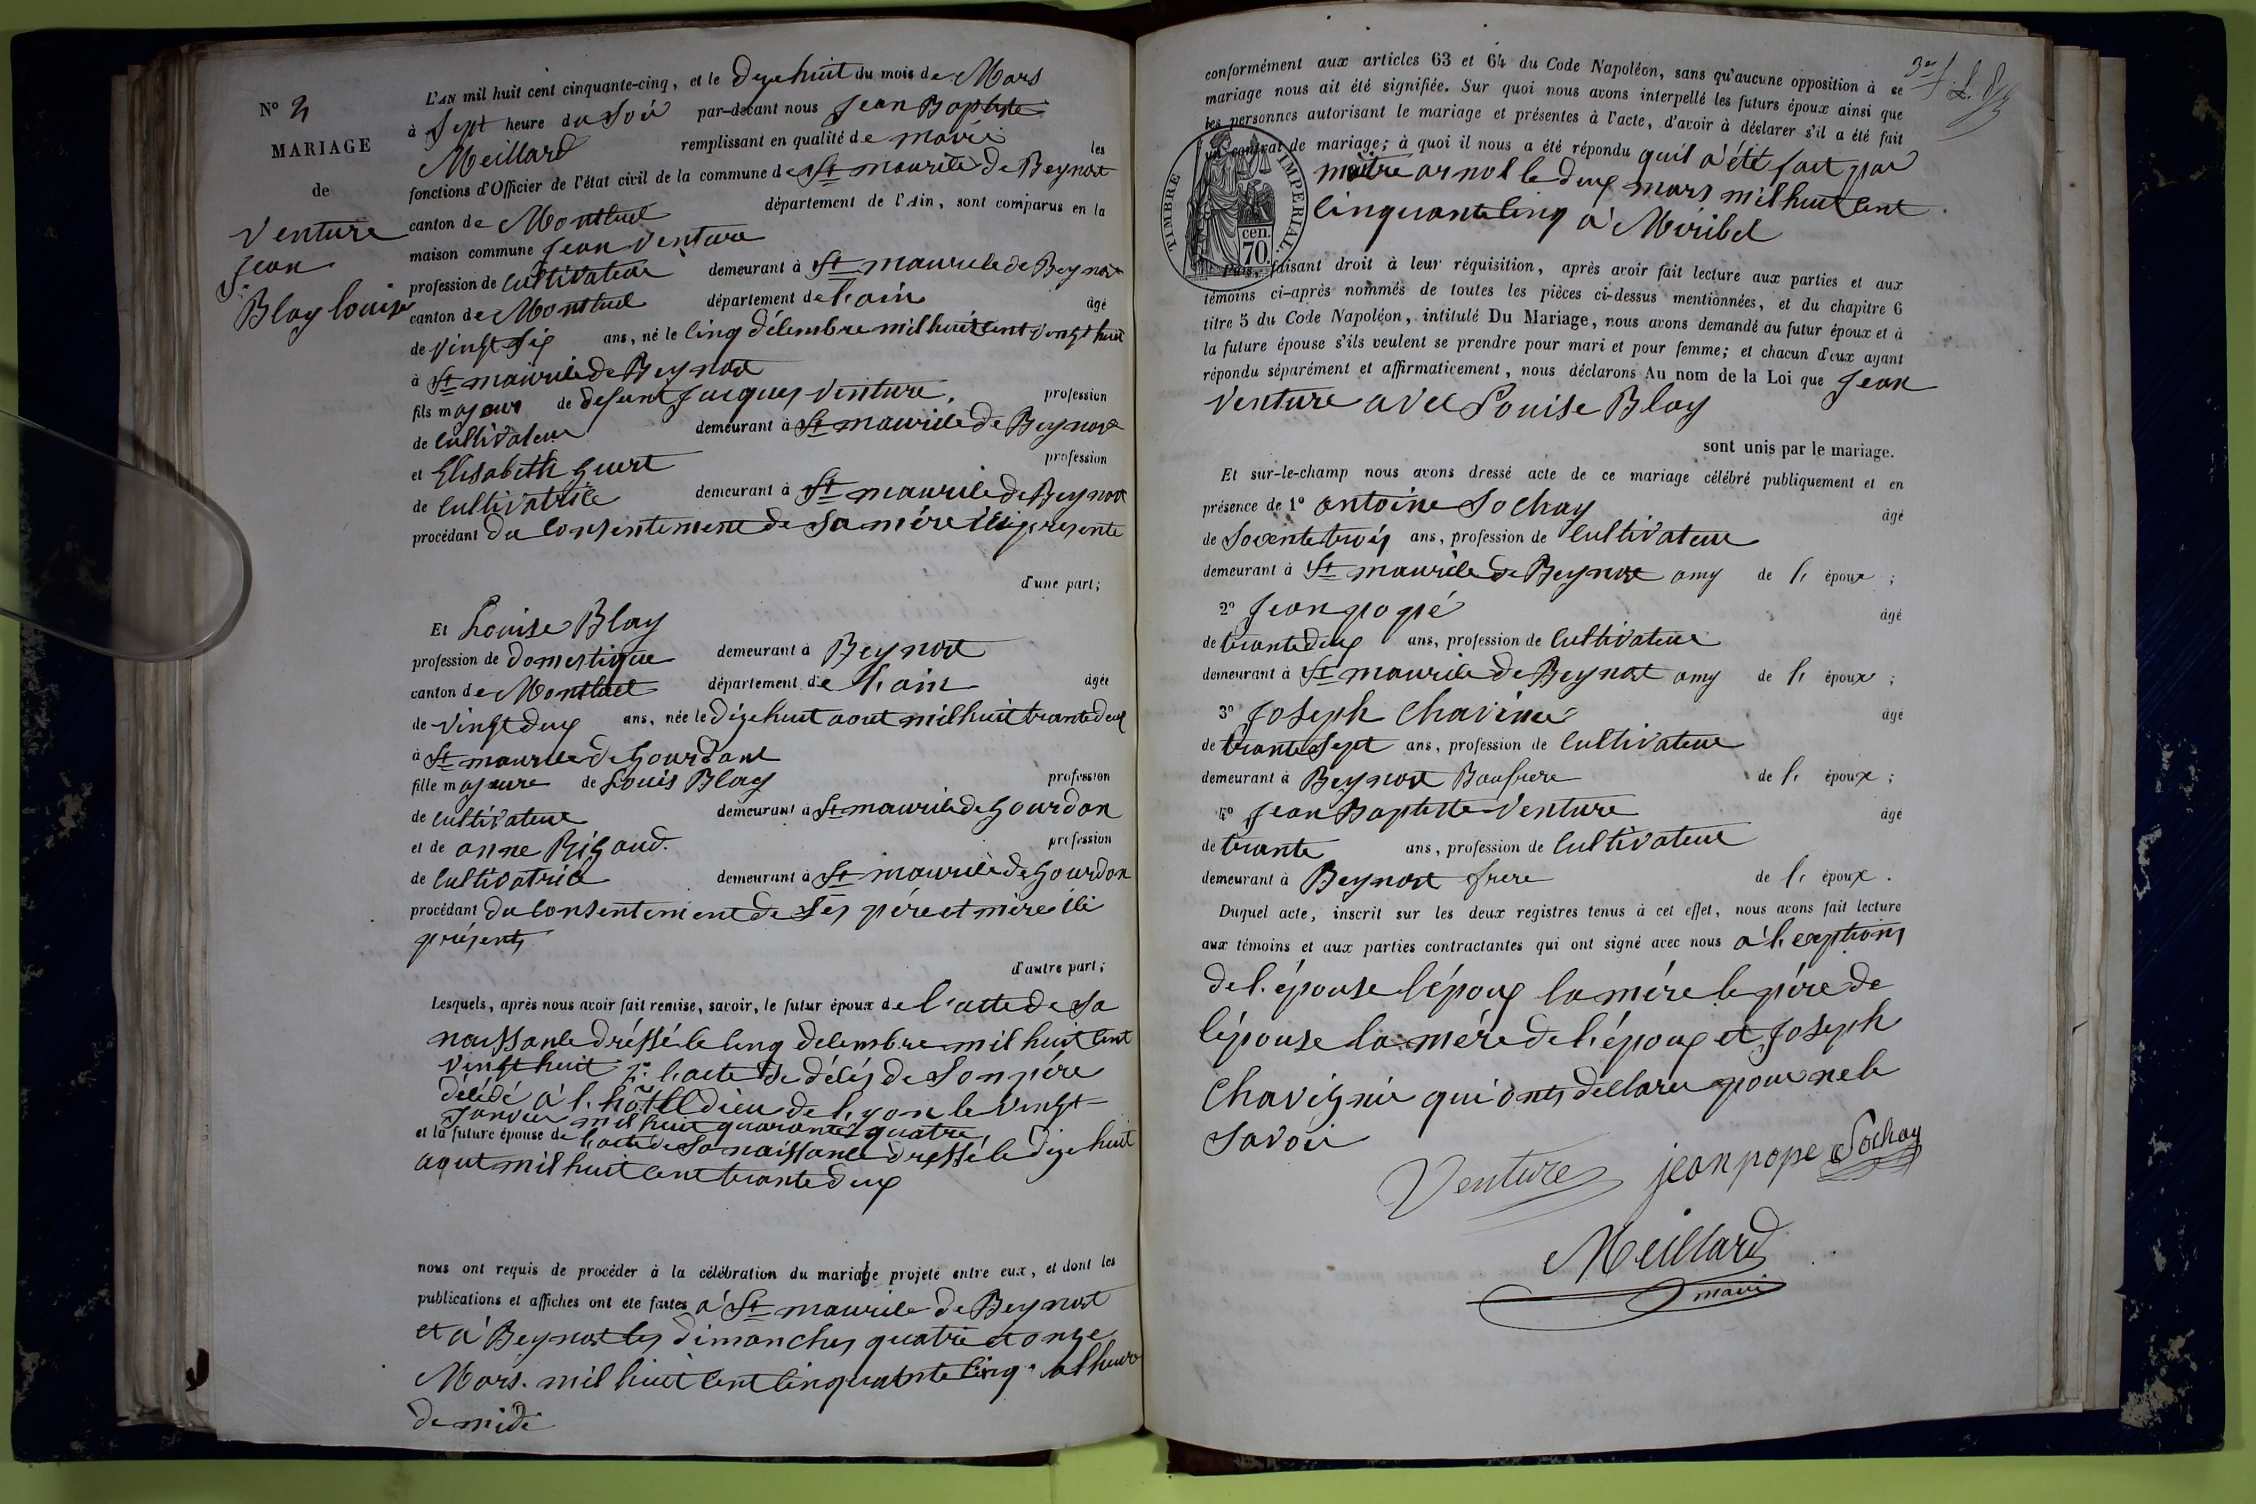 L'AN mil huit cent cinquante-cinq, et le dyxe huit du mois de Mars
N°
à Sept heure du Soir par-devant nous Jean Baptiste
MARIAGE
Meillard remplissant en qualité de maire les
de
fonctions d'Officier de l'état civil de la commune de St maurice de Beynost
Venture
canton de Montluel département de l'Ain, sont comparus en la
Jean
maison commune Jean Venture
profession de cultivateur demeurant à St maurice de Beynost
Blay louise
canton de Montluel département de l'ain âgé
de vingt six ans, né le cinq décembre mil huit cent vingt huit
à St maurice de Beynost
fils majeur de defunt Jacques Venture, profession
de cultivateur demeurant à St maurice de Beynost
et Elisabeth Guert profession
de cultivatrice demeurant à St maurice de Beynost
procédant du consentement de sa mére ici presente
d'une part;
Et Louise Blay
profession de domestique demeurant à Beynost
canton de Montluel département de l'ain âgée
de vingt deux ans, née le dixe huit aout mil huit trante deux
à St maurice de Gourdant
fille majeure de Louis Blay profession
de cultivateur demeurant à St maurice de Gourdan
et de anne Rigaud. profession
de cultivatrice demeurant à St maurice de Gourdan
procédant du consentement de ses pére et mére ici
présents
d'autre part;
Lesquels, après nous avoir fait remise, savoir, le futur époux de l'acte de sa
naissance dréssé le cinq decembre mil huit cent
vingt huit 2° l'acte de décés de son pére
décédé à l'hôtel dieu de lyon le vingt
janvier mil huit quarante quatre
et la future épouse de l'acte de sa naissance dressé le dixe huit
aout mil huit cent trante deux
nous ont requis de procéder à la célébration du mariage projeté entre eux, et dont les
publications et affiches ont été faites à St maurice de Beynost
et à Beynost les dimanches quatre et onze
Mars. mil huit cent cinquante cinq. a l'heure
de midi
conformément aux articles 63 et 64 du Code Napoléon, sans qu'aucune opposition à ce
mariage nous ait été signifiée. Sur quoi nous avons interpellé les futurs époux ainsi que
les personnes autorisant le mariage et présentes à l'acte, d'avoir à déclarer s'il a été fait
un contrat de mariage; à quoi il nous a été répondu quil a été fait par
maître arnol le deux mars mil huit cent
cinquante cinq à Miribel
TIMBRE IMPERIAL.
cen.
70.
Puis, faisant droit à leur réquisition, après avoir fait lecture aux parties et aux
témoins ci-après nommés de toutes les pièces ci-dessus mentionnées, et du chapitre 6
titre 5 du Code Napoléon, intitulé Du Mariage, nous avons demandé au futur époux et à
la future épouse s'ils veulent se prendre pour mari et pour femme; et chacun d'eux ayant
répondu séparément et affirmativement, nous déclarons Au nom de la Loi que Jean
Venture avec Louise Blay
sont unis par le mariage.
Et sur-le-champ nous avons dressé acte de ce mariage célébré publiquement et en
présence de 1° antoine Sochay âgé
de soixente trois ans, profession de cultivateur
demeurant à St maurice de Beynost amy de l' époux ;
2° Jean popé âgé
de trante deux ans, profession de cultivateur
demeurant à St maurice de Beynost amy de l' époux ;
3° Joseph Chavinié âgé
de trante sept ans, profession de cultivateur
demeurant à Beynost Baufrere de l' époux ;
4° Jean Baptiste Venture âgé
de trante ans, profession de cultivateur
demeurant à Beynost frere de l' époux .
Duquel acte, inscrit sur les deux registres tenus à cet effet, nous avons fait lecture
aux témoins et aux parties contractantes qui ont signé avec nous à l'exeptions
de l'épouse l'époux la mére le pére de
l'épouse la mére de l'époux et Joseph
Chavignié qui onts déclaré pour ne le
savoir
Venture jean pope Sochay
Meillard
maire